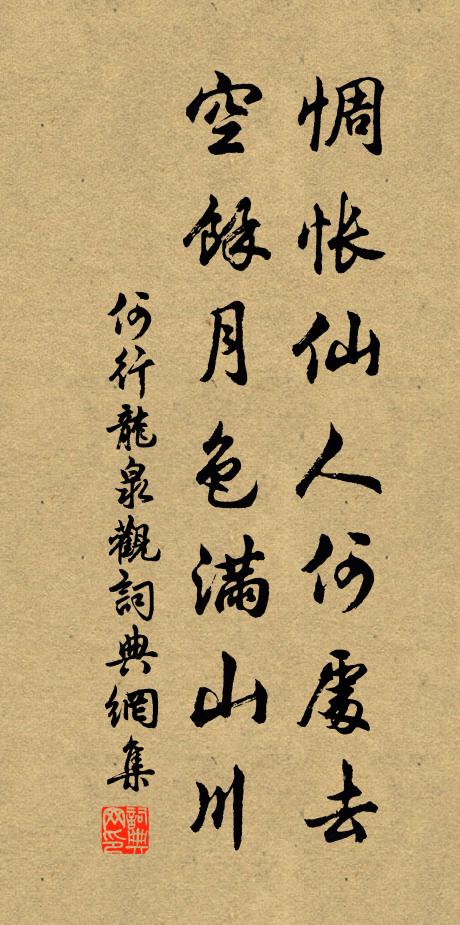 惆悵仙人何處去
空餘月色滿山川
何行龍泉觀詞典網集
詞典網印